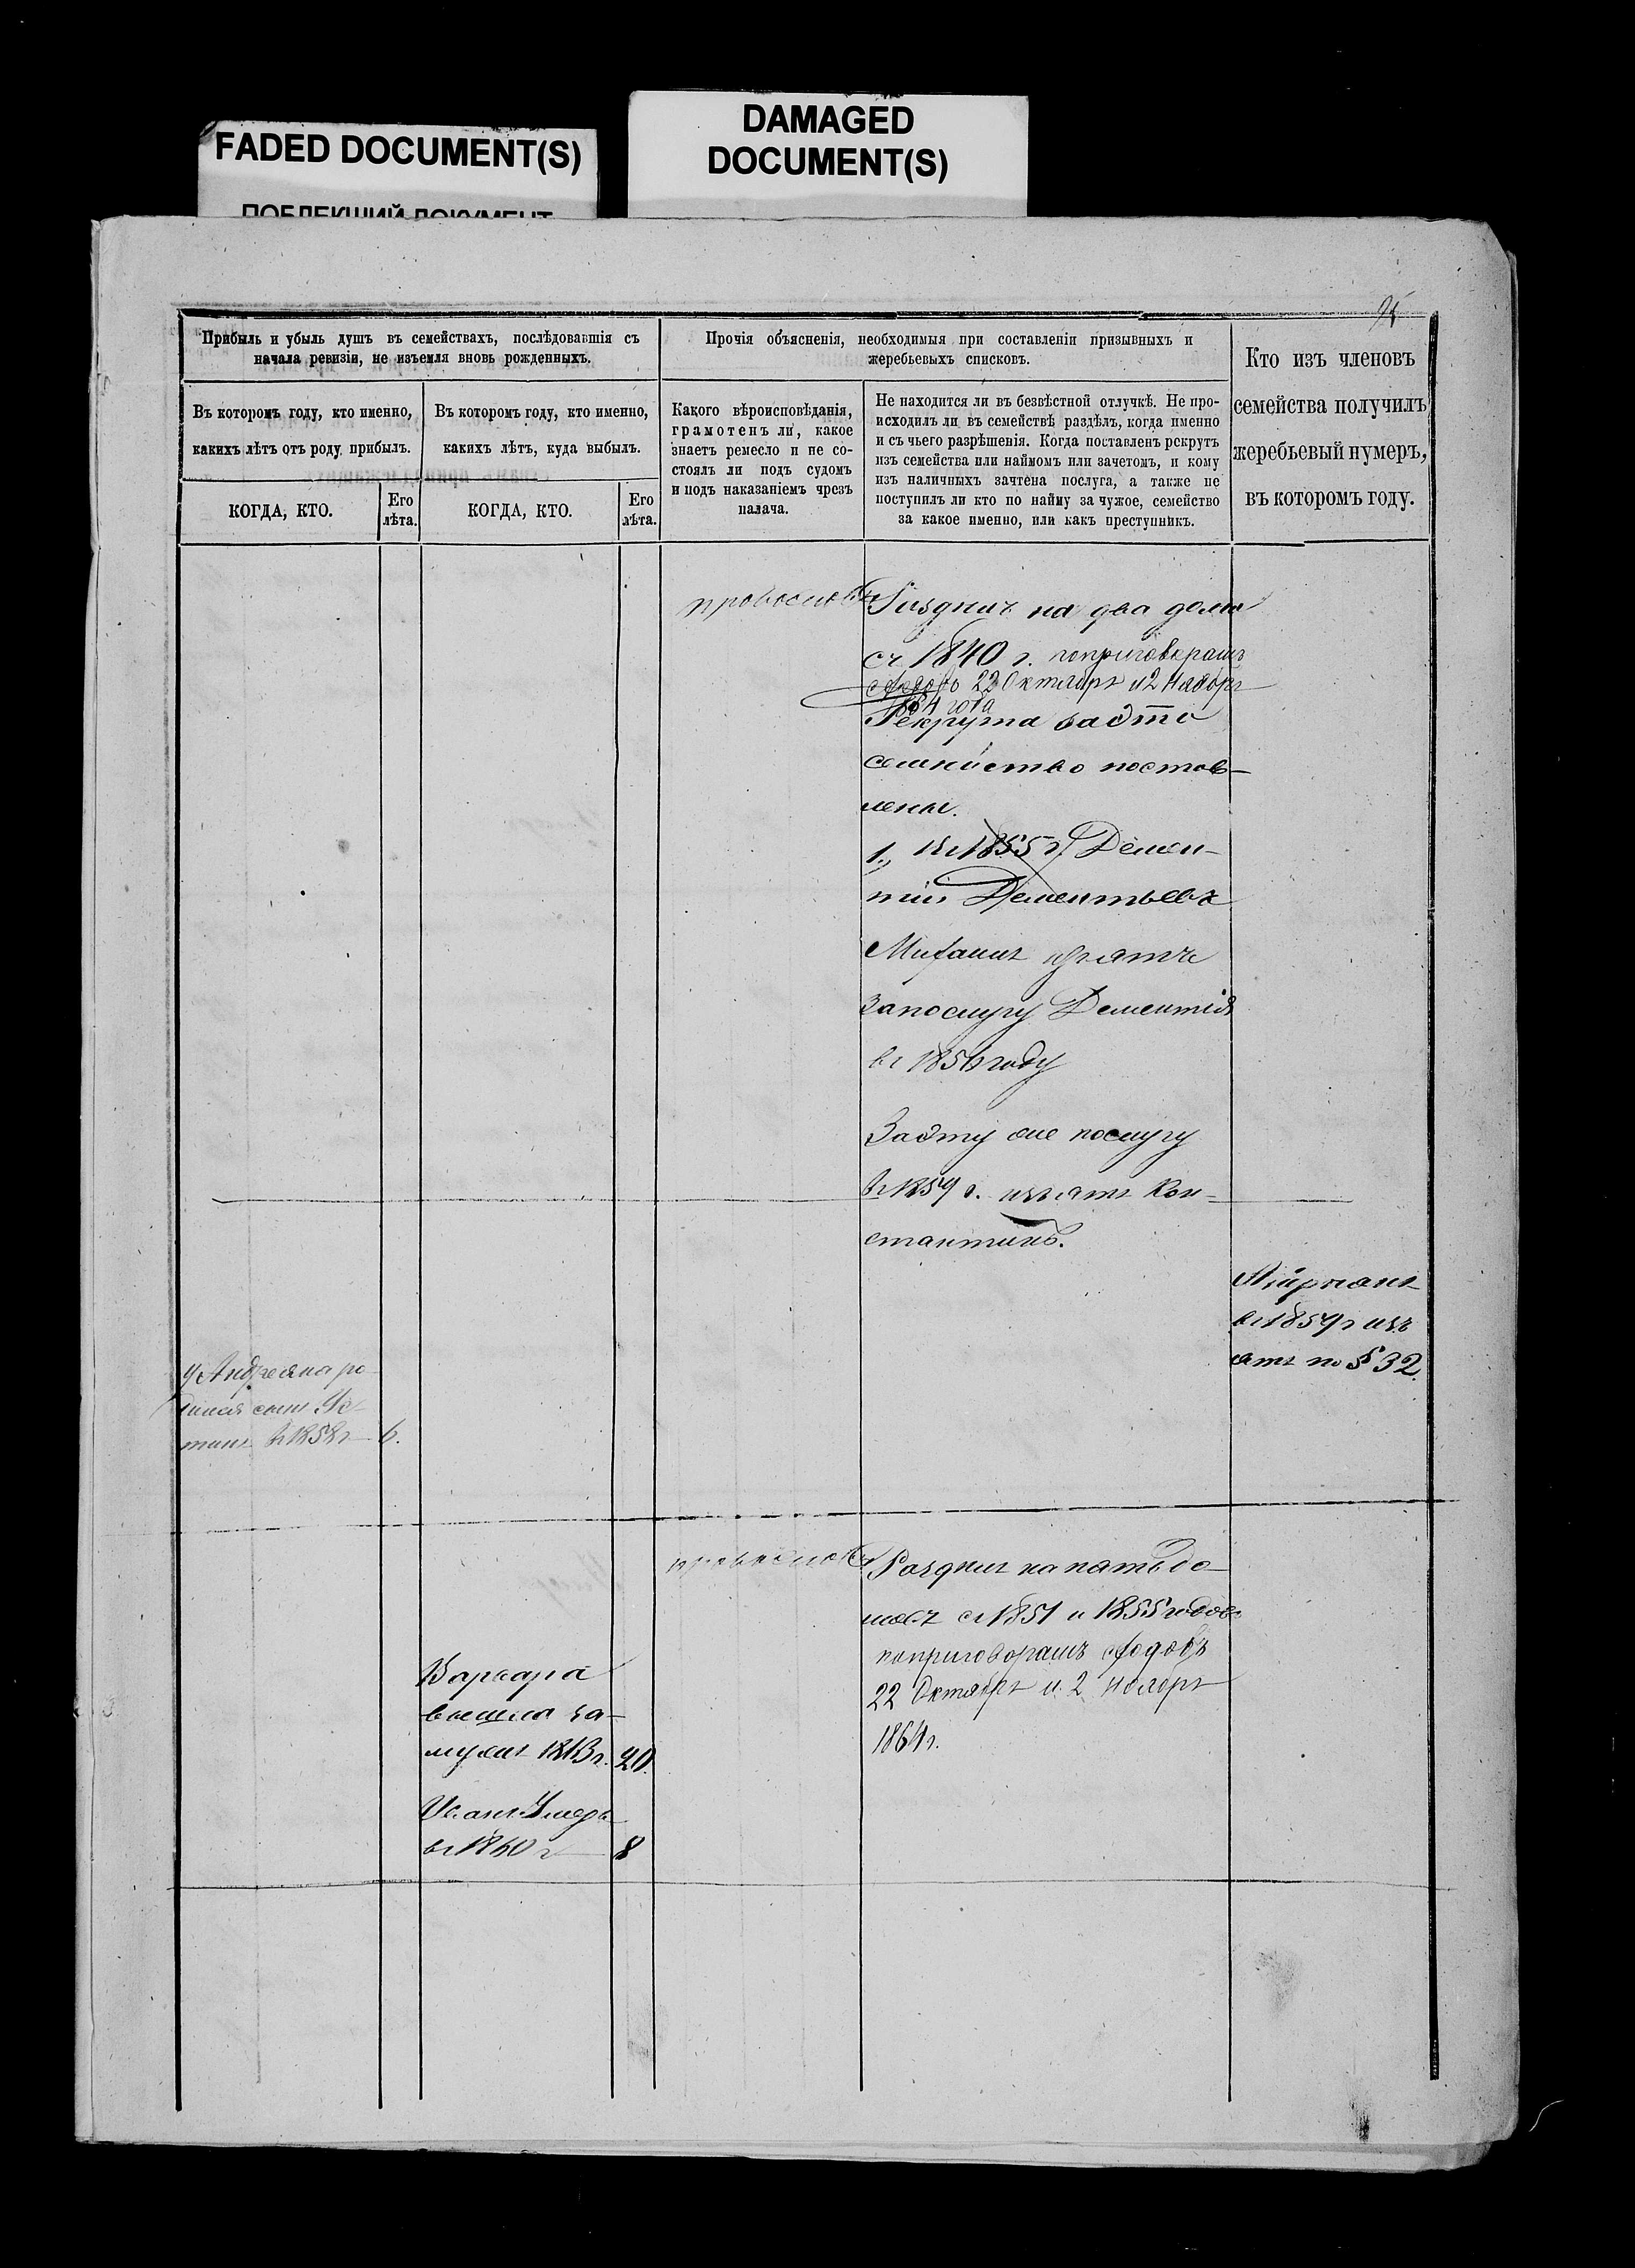 FADED DOCUMENT(S)
ПОБЛЕКШИЙ ДОКУМЕНТ
DAMAGED
DOCUMENT(S)
Прибыль и убыль душъ въ семействахъ, послѣдовавшія съ
начала ревизіи, не изъемля вновь рожденныхъ.
Въ которомъ году, кто именно,
какихъ лѣтъ отъ роду прибылъ.
Въ которомъ году, кто именно,
какихъ лѣтъ, куда выбылъ.
КОГДА, КТО.
Его
лѣта.
КОГДА, КТО.
Его
лѣта.
Прочія объясненія, необходимыя при составленіи призывныхъ и
жеребьевыхъ списковъ.
Какого вѣроисповѣданія,
грамотенъ ли, какое
знаетъ ремесло и не со-
стоялъ ли подъ судомъ
и подъ наказаніемъ чрезъ
палача.
Не находится ли въ безвѣстной отлучкѣ. Не про-
исходилъ ли въ семействѣ раздѣлъ, когда именно
и съ чьего разрѣшенія. Когда поставленъ рекрутъ
изъ семейства или наймомъ или зачетомъ, и кому
изъ наличныхъ зачтена послуга, а также не
поступилъ ли кто по найму за чужое, семейство
за какое именно, или какъ преступникъ.
Кто изъ членовъ
семейства получилъ
жеребьевый нумеръ,
въ которомъ году.
на два дома
съ 1840 г. поприговорамъ
22 Октября и 2 Ноября
года
Рекрута за это
семейство постав-
лены.
1., въ 1855 г. Демен-
тій Дементьевъ
Михаилъ изъятъ
за послугу Дементія
въ 1856 году
За эту же послугу
въ 1859 г. изъятъ Кон-
стантинъ.
въ 1859 г изъ
ятъ по § 32.
у Андреяна ро-
дился сынъ
въ 1858 г 6.
на пять до-
мовъ съ 1851 и 1855 годовъ
поприговорамъ сходовъ
22 Октября и 2 Ноября
1864 г.
Варвара
вышла за-
мужъ г. 20.
Иванъ Умеръ
въ 1860 г 8